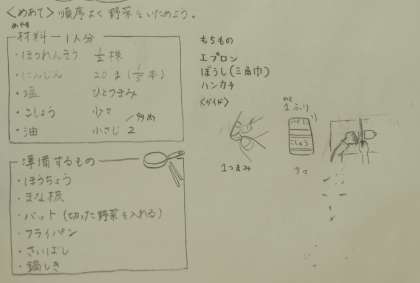 <めあて> 順序よく野菜をいためよう。
材料 一1人分
・ほうれんそう 1/2株
・にんじん 20g
・塩 ひとつまみ
・こしょう 少々
・油 小さじ2
もちもの
エプロン
ぼうし(三角巾)
ハンカチ
1つまみ
1ふり
こしょう
準備するもの
・ほうちょう
・まな板
・バット (切った野菜を入れる)
・フライパン
・さいばし
・鍋しき